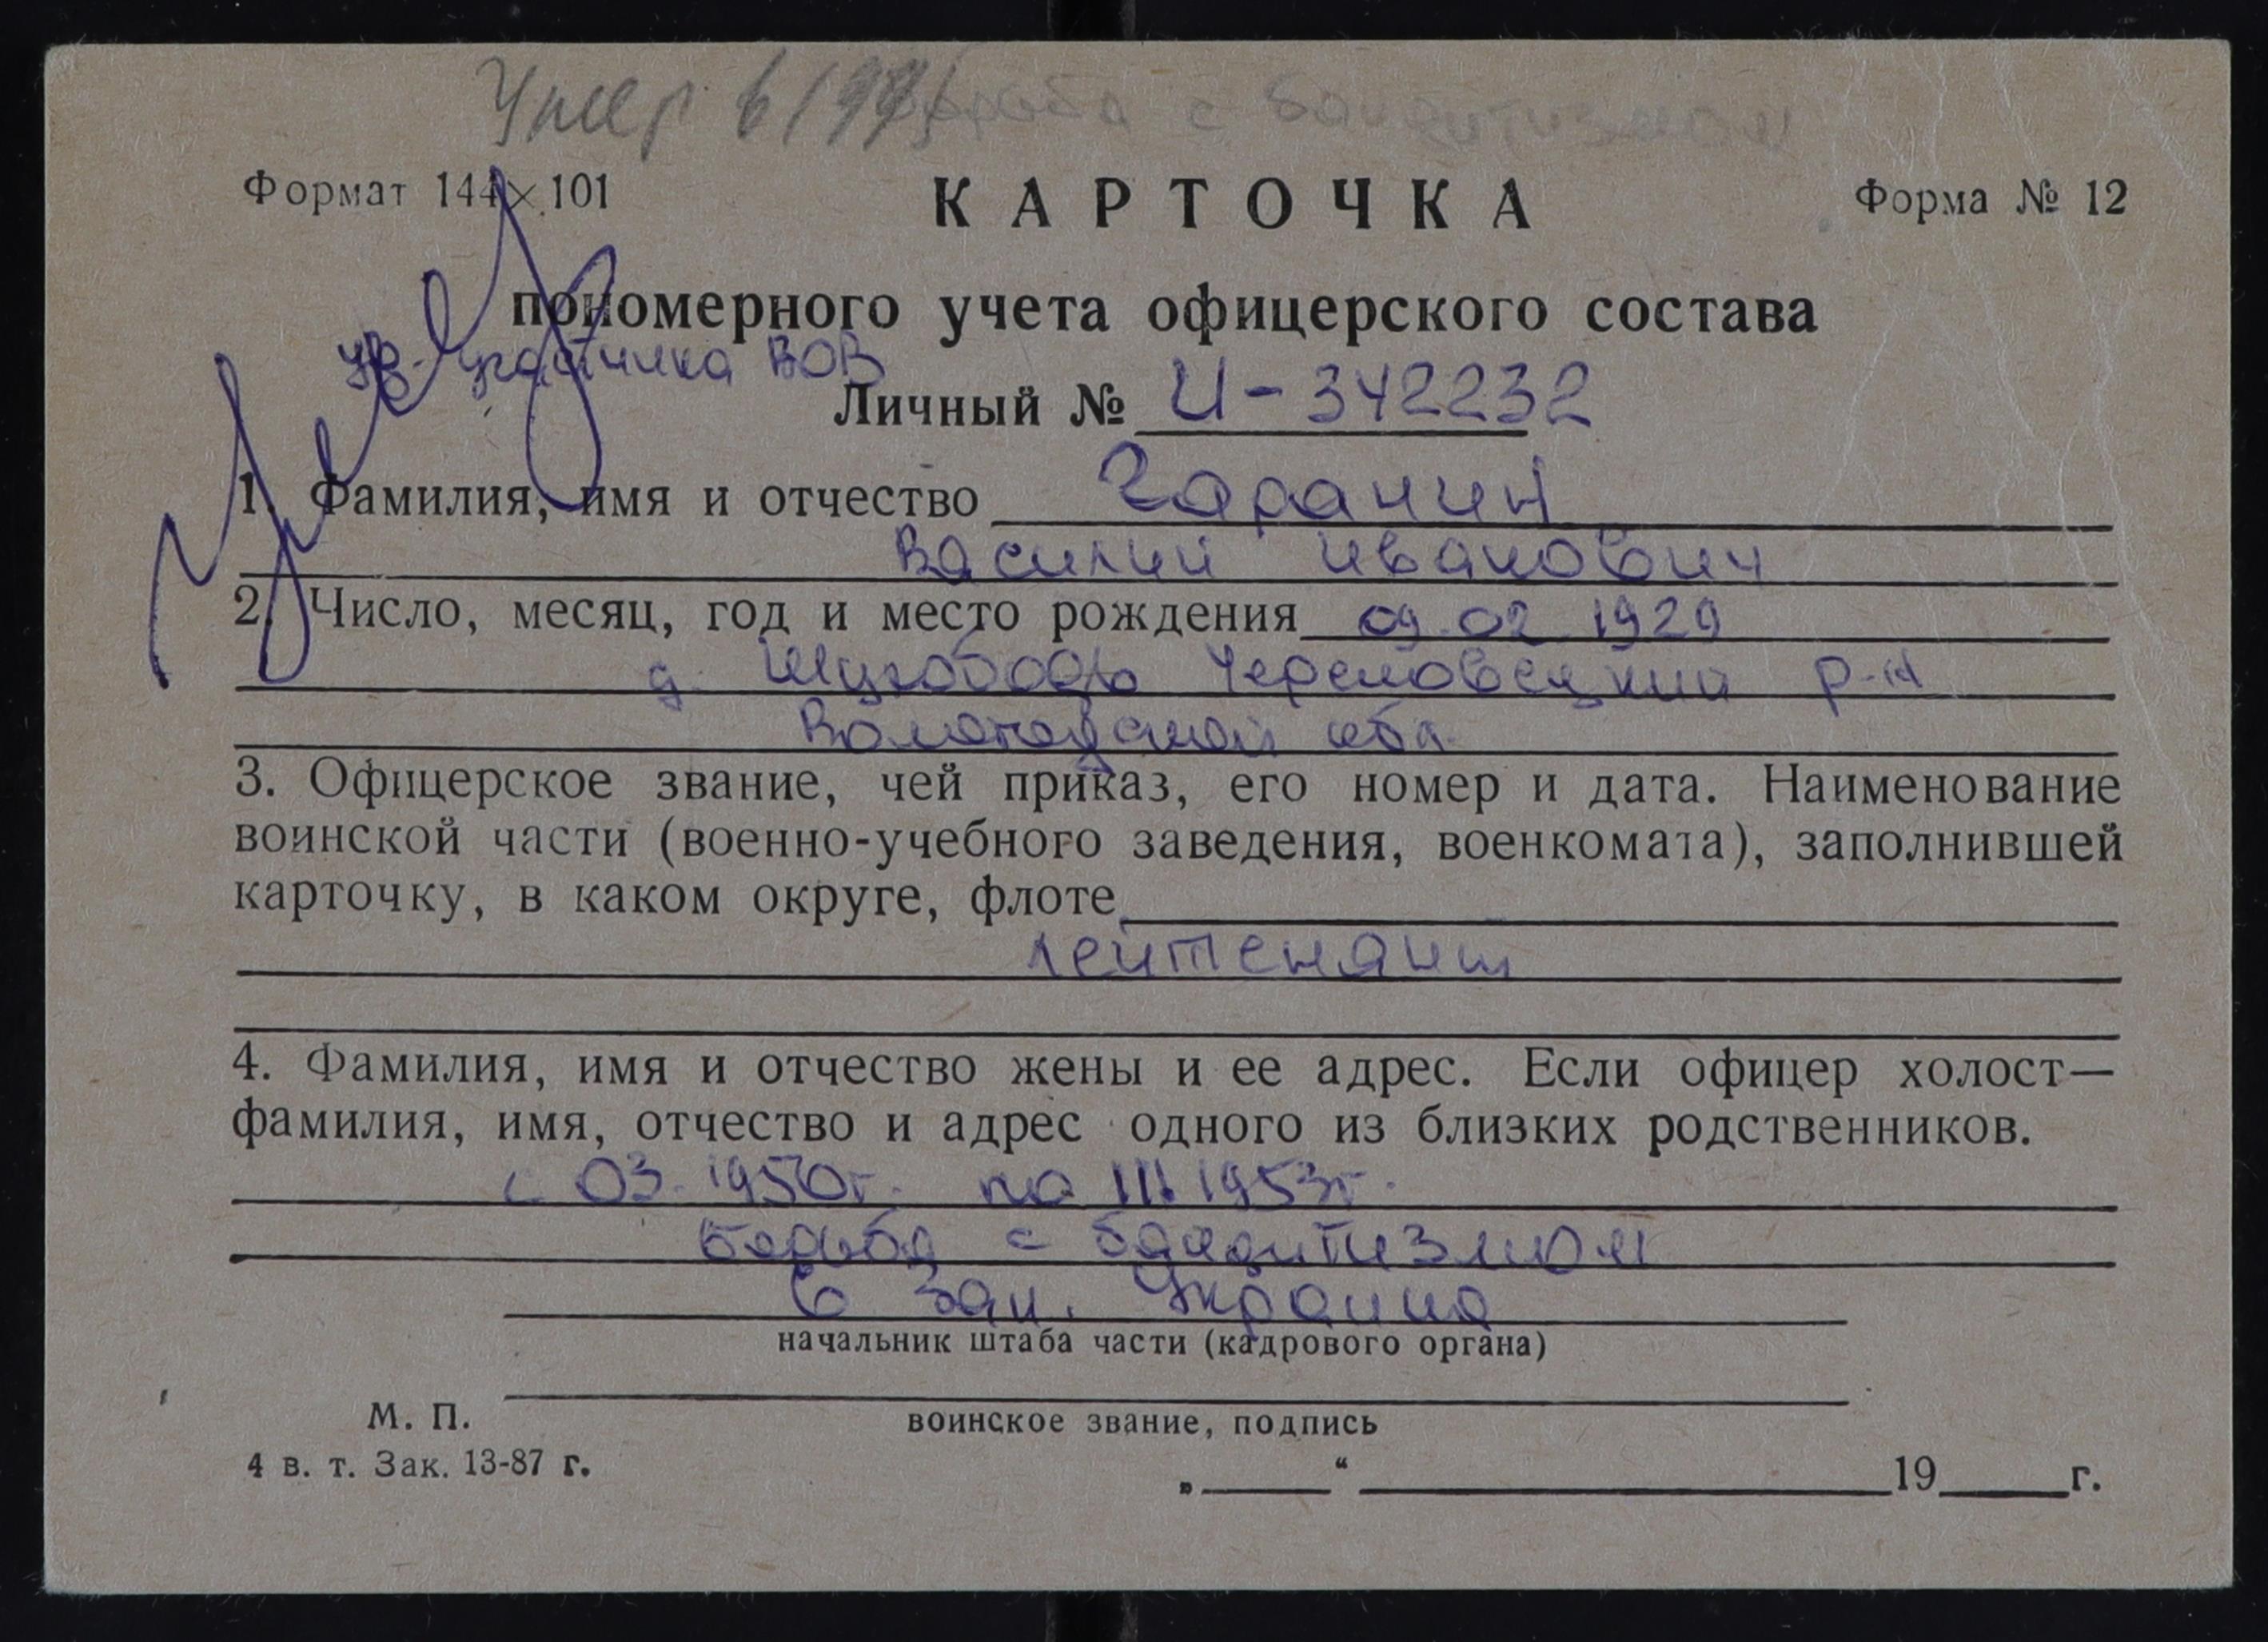 Умер в 199 борьба с бандитизмом
Формат 144×101 КАРТОЧКА Форма № 12
пономерного учета офицерского состава
уд. участника ВОВ
Личный № И-342232
1. Фамилия, имя и отчество Гаранин
Василий Иванович
2. Число, месяц, год и место рождения 09.02 1929
д. Шугободь Череповецкий р-н
Вологодской обл.
3. Офицерское звание, чей приказ, его номер и дата. Наименование
воинской части (военно-учебного заведения, военкомата), заполнившей
карточку, в каком округе, флоте
лейтенянт
4. Фамилия, имя и отчество жены и ее адрес. Если офицер холост—
фамилия, имя, отчество и адрес одного из близких родственников.
с 03. 1950г. по III 1953г.
Борьба с бандитизмом
в Зап. Украина
начальник штаба части (кадрового органа)
М. П.
воинское звание, подпись
4 в. т. Зак. 13-87 г.
„ “ 19 г.